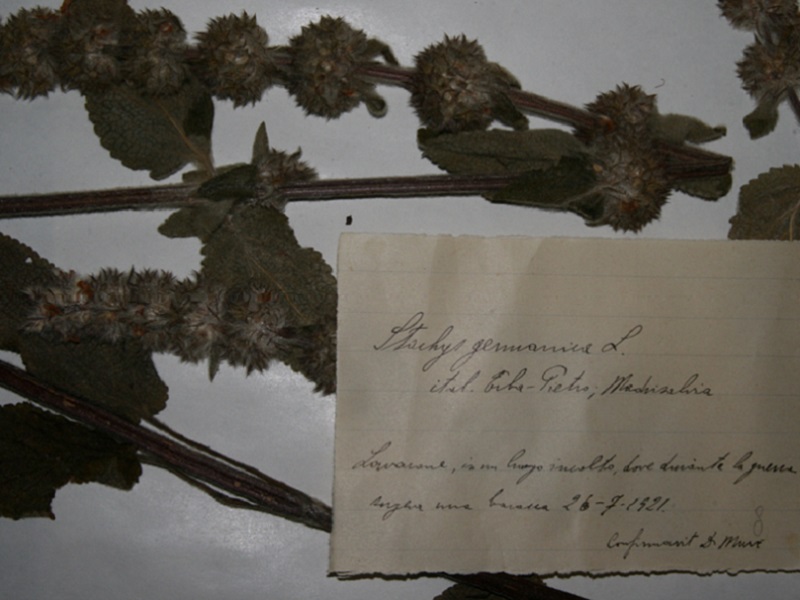 Stachys germanica L.
ital. Erba-Pietro; Madrisalvia
in un luogo incolto, dove durante la guerra
sorgeva una baracca 26-7-1921.
Confirmavit Dr
8